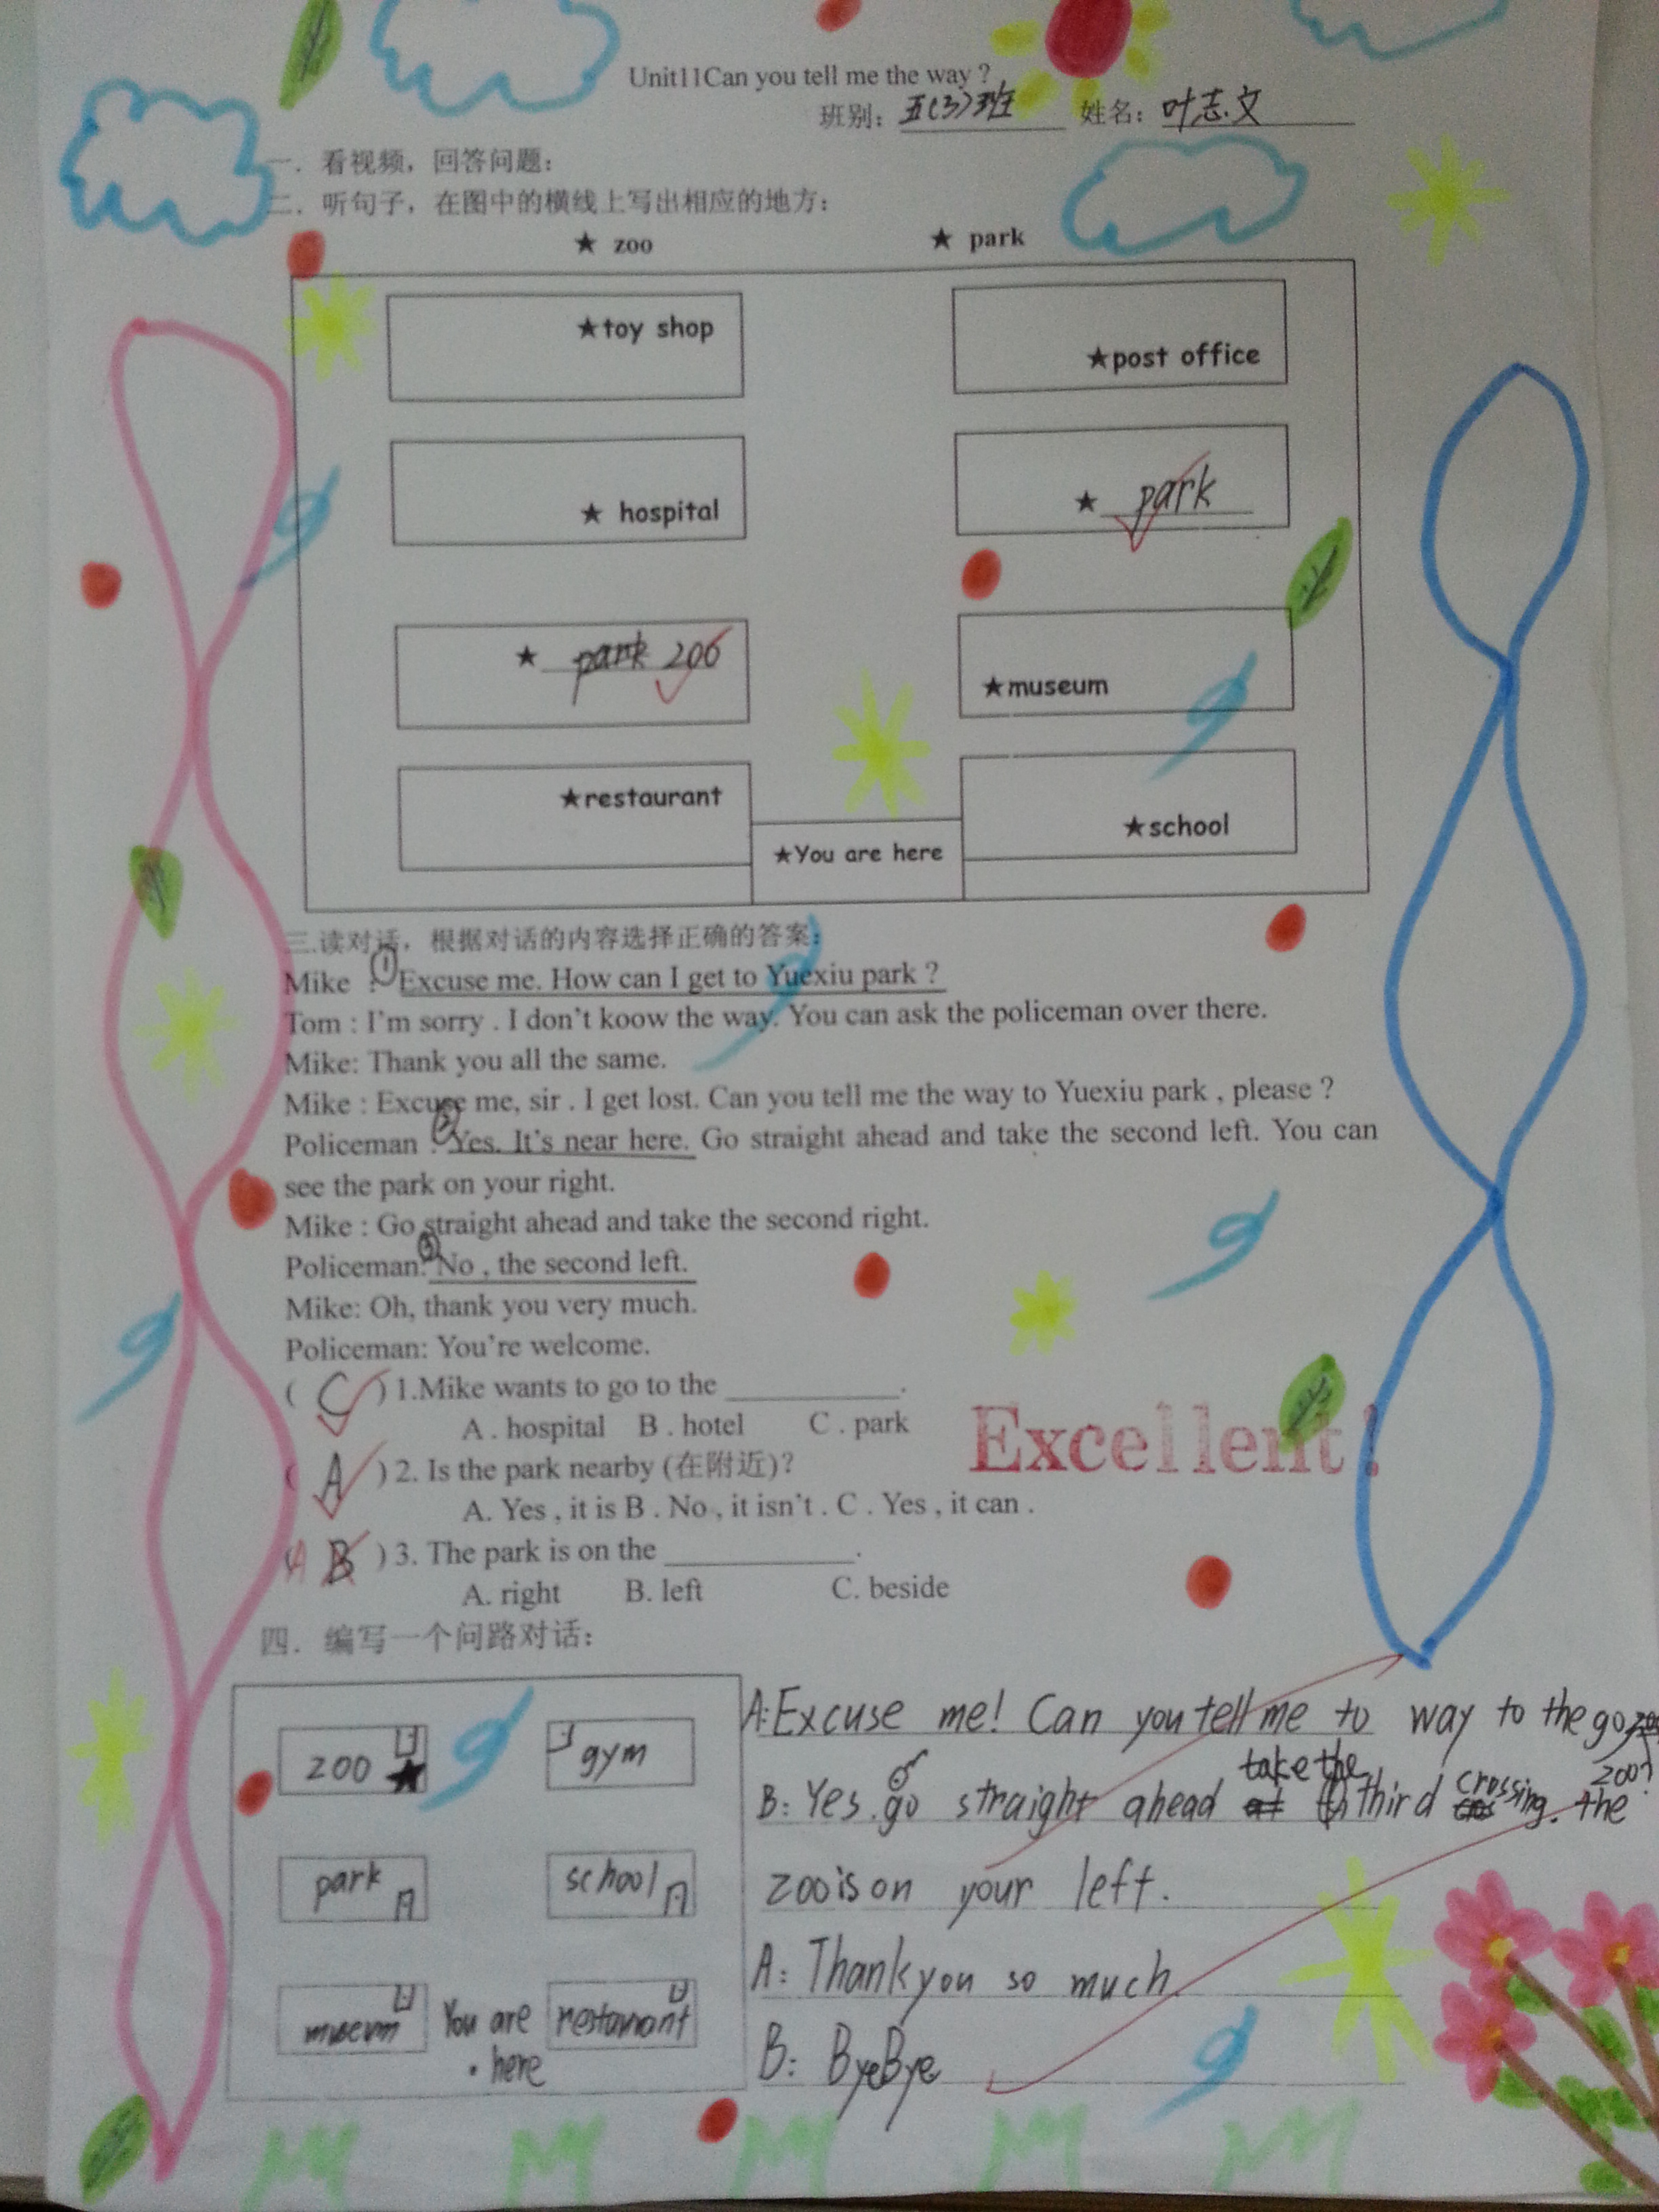 Unit11Can you tell me the way ?
班别: 五(3)班 姓名: 叶志文
一. 看视频，回答问题:
二. 听句子，在图中的横线上写出相应的地方:
★ zoo ★ park
★toy shop ★post office
★ hospital ★ park
★ park zoo ★museum
★restaurant ★school
★You are here
三.读对话，根据对话的内容选择正确的答案:
Mike : ① Excuse me. How can I get to Yuexiu park ?
Tom : I'm sorry . I don't koow the way. You can ask the policeman over there.
Mike: Thank you all the same.
Mike : Excuse me, sir . I get lost. Can you tell me the way to Yuexiu park , please ?
Policeman : ② Yes. It's near here. Go straight ahead and take the second left. You can
see the park on your right.
Mike : Go straight ahead and take the second right.
Policeman: ③ No , the second left.
Mike: Oh, thank you very much.
Policeman: You're welcome.
( C ) 1.Mike wants to go to the ____________.
A . hospital B . hotel C . park
Excellent!
( A ) 2. Is the park nearby (在附近)?
A. Yes , it is B . No , it isn't . C . Yes , it can .
( A B ) 3. The park is on the ____________.
A. right B. left C. beside
四. 编写一个问路对话:
zoo ★ gym
park school
museum You are here restaurant
A: Excuse me! Can you tell me to way to the go zoo?
B: Yes. go straight ahead take the third crossing. the
zoo is on your left.
A: Thank you so much.
B: ByeBye